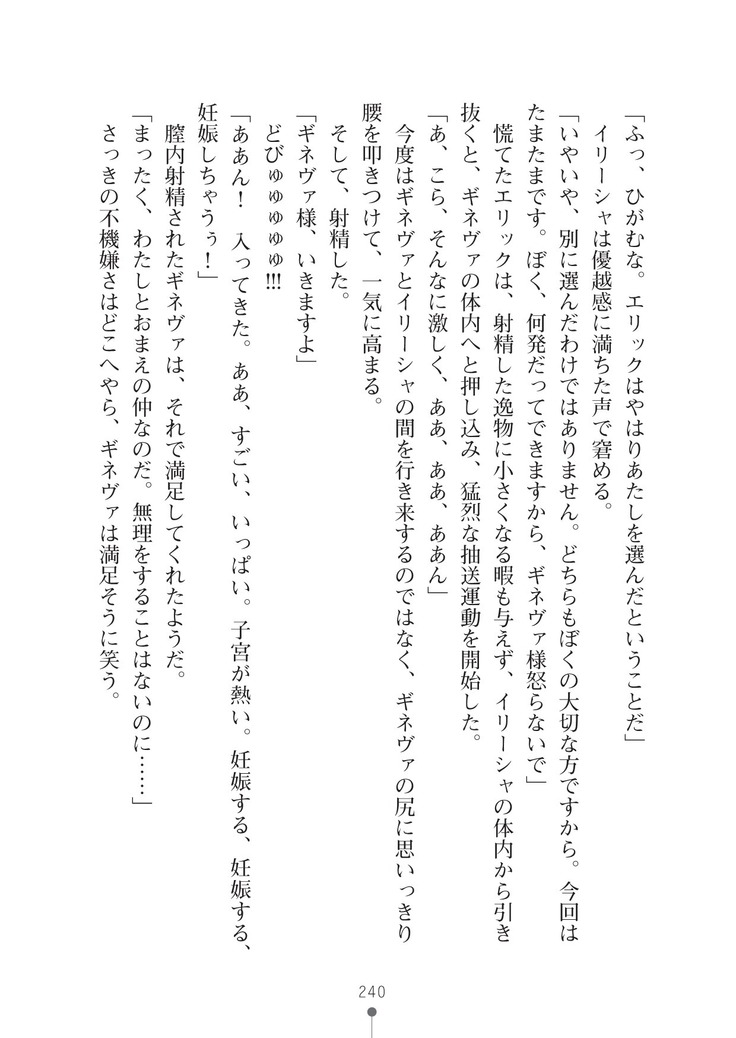 「ふっ、ひがむな。エリックはやはりあたしを選んだということだ」
イリーシャは優越感に満ちた声で窘める。
「いやいや、別に選んだわけではありません。どちらもぼくの大切な方ですから。今回は
たまたまです。ぼく、何発だってできますから、ギネヴァ様怒らないで」
慌てたエリックは、射精した逸物に小さくなる暇も与えず、イリーシャの体内から引き
抜くと、ギネヴァの体内へと押し込み、猛烈な抽送運動を開始した。
「あ、こら、そんなに激しく、ああ、ああ、ああん」
今度はギネヴァとイリーシャの間を行き来するのではなく、ギネヴァの尻に思いっきり
腰を叩きつけて、一気に高まる。
そして、射精した。
「ギネヴァ様、いきますよ」
どびゅゅゅゅゅ!!!
「ああん！　入ってきた。ああ、すごい、いっぱい。子宮が熱い。妊娠する、妊娠する、
妊娠しちゃうぅ！」
膣内射精されたギネヴァは、それで満足してくれたようだ。
「まったく、わたしとおまえの仲なのだ。無理をすることはないのに……」
さっきの不機嫌さはどこへやら、ギネヴァは満足そうに笑う。
240